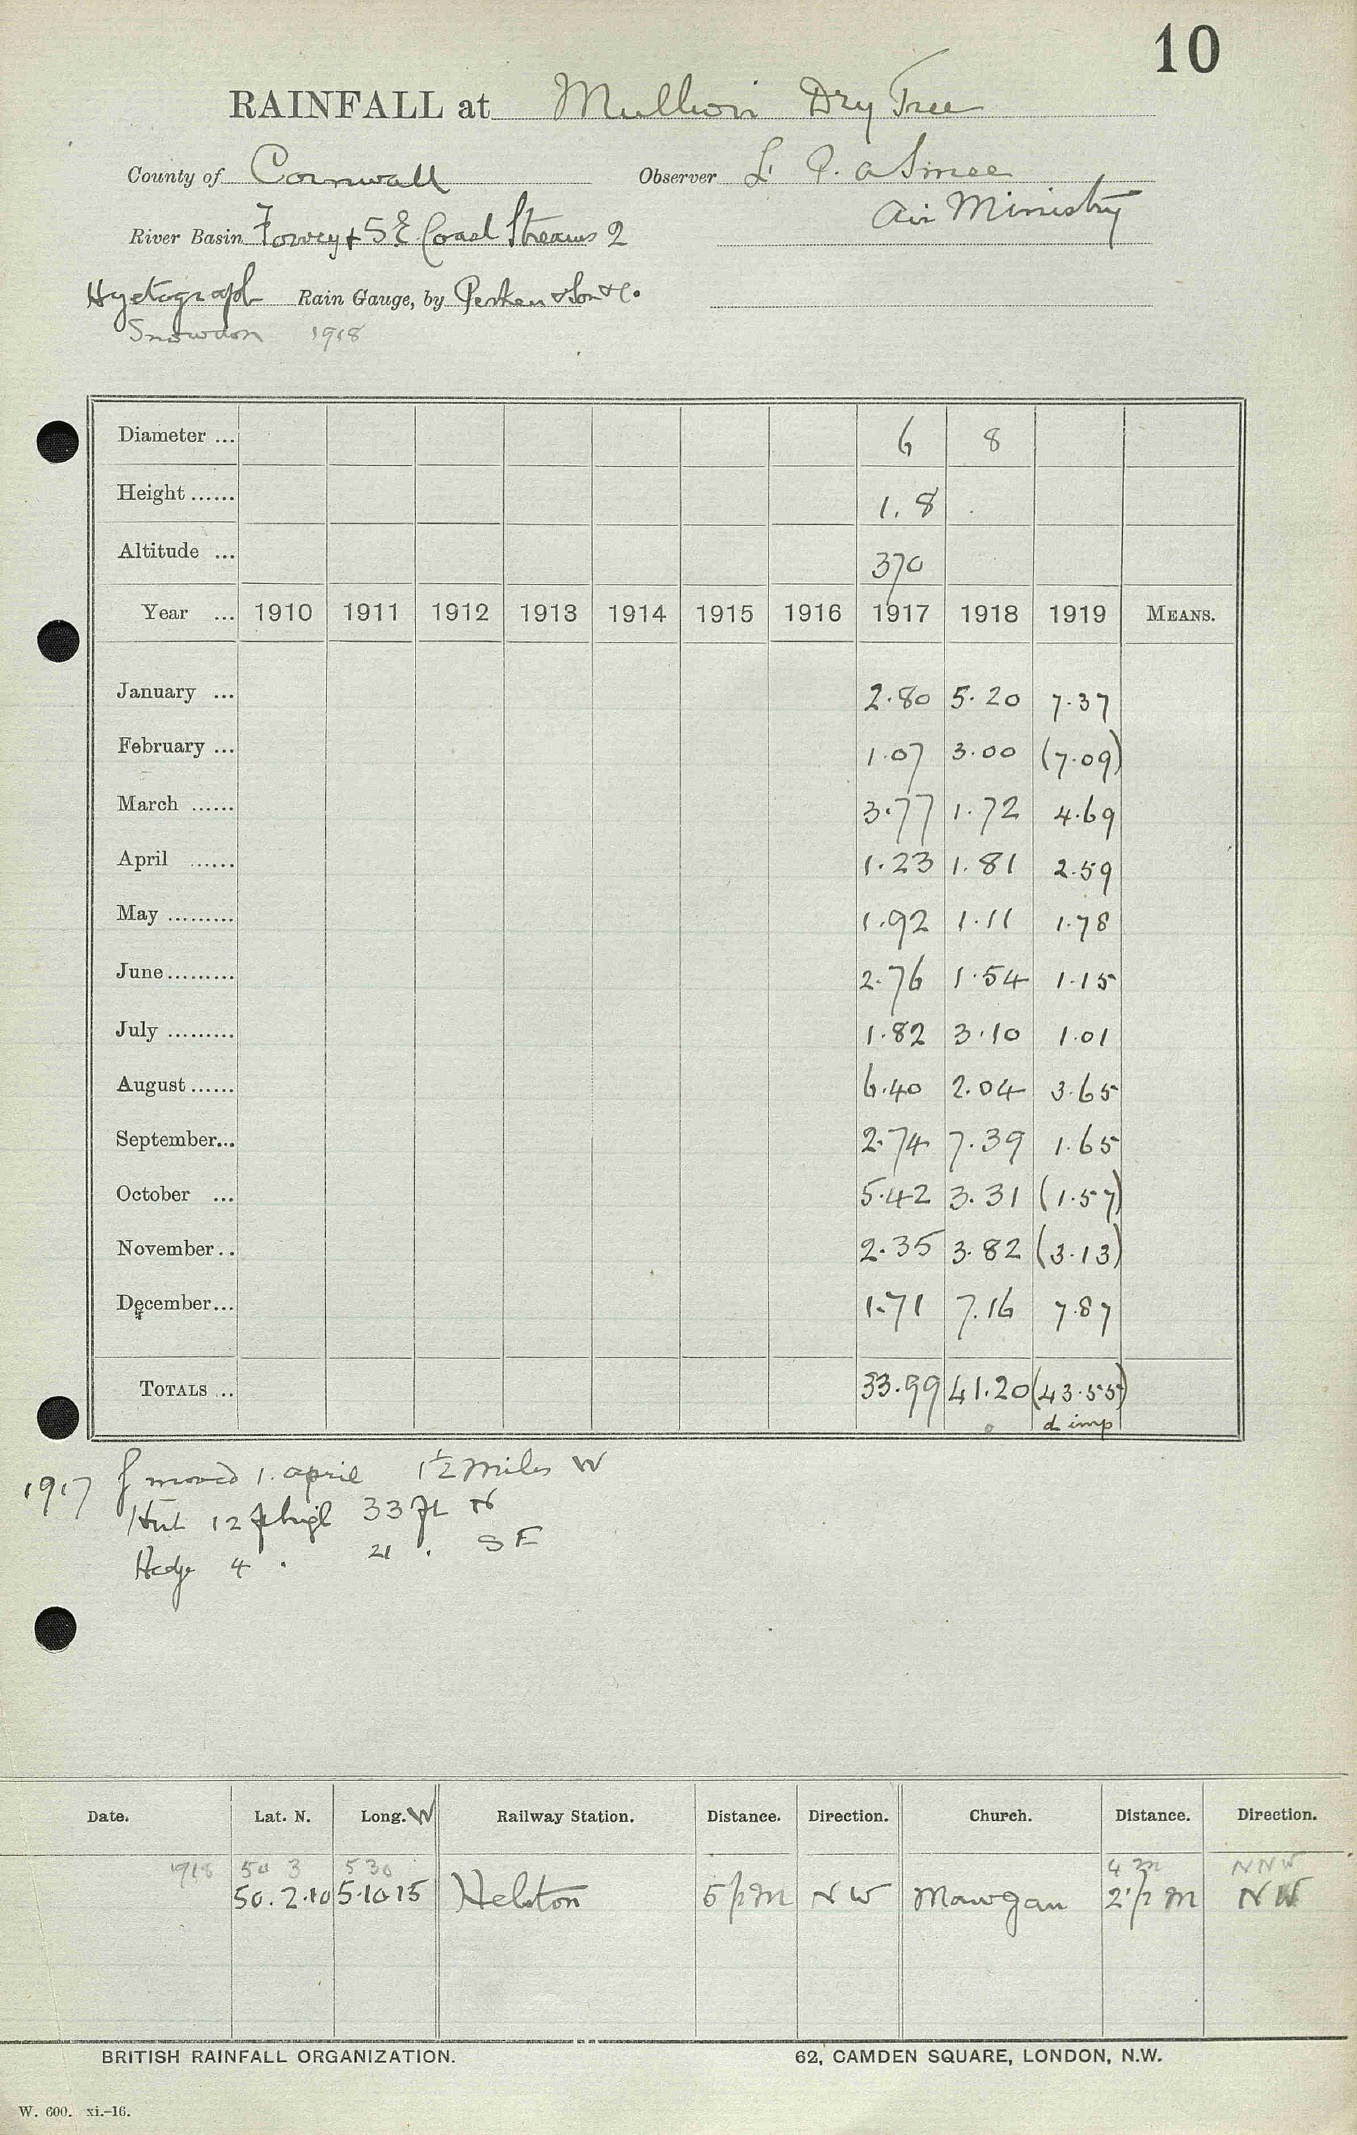 10
RAINFALL at Mullion Dry Tree
County of Cornwall Observer Lt P. A Smee
Air Ministry
River Basin Fowey & SE Coast Streams 2
Hyetograph Rain Gauge, by Perken & Son & Co.
Snowdon 1918
Diameter ... 6 8
Height ...... 1.8
Altitude ... 370
Year ... 1910 1911 1912 1913 1914 1915 1916 1917 1918 1919 MEANS.
January ... 2.80 5.20 7.37
February ... 1.07 3.00 (7.09)
March ...... 3.77 1.72 4.69
April ...... 1.23 1.81 2.59
May ......... 1.92 1.11 1.78
June......... 2.76 1.54 1.15
July ......... 1.82 3.10 1.01
August...... 6.40 2.04 3.65
September... 2.74 7.39 1.65
October ... 5.42 3.31 (1.57)
November.. 2.35 3.82 (3.13)
December... 1.71 7.16 7.87
TOTALS ... 33.99 41.20 (43.55)
d imp
1917 moved 1. April 1½ miles W
Hut 12 ft high 33 ft N
Hedge 4 . 21 . SE
Date. Lat. N. Long. W Railway Station. Distance. Direction. Church. Distance. Direction.
1918 50 3 5 30 4 m NNW
50.2.10 5.10 15 Helston 5½ M NW Mawgan 2½ M NW
BRITISH RAINFALL ORGANIZATION. 62, CAMDEN SQUARE, LONDON, N.W.
W. 600. xi.-16.